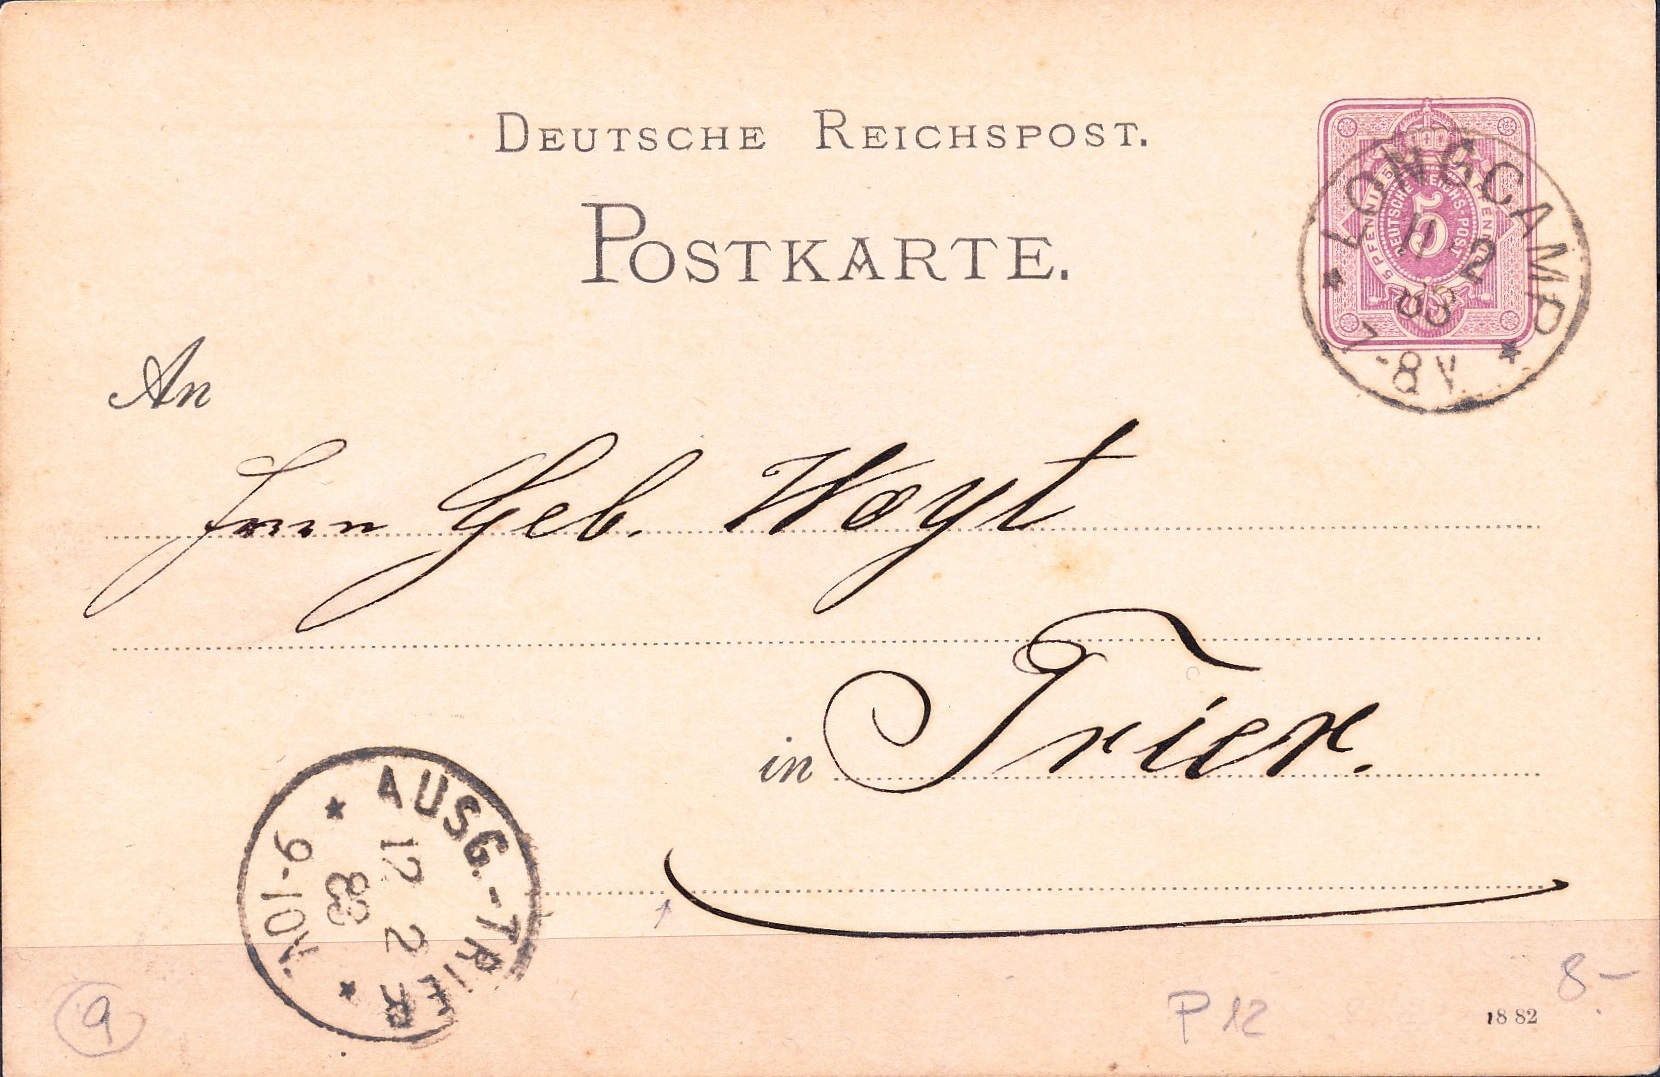 DEUTSCHE REICHSPOST.
POSTKARTE.
5 PFENNIG
DEUTSCHE REICHS-POST
5
LONGCAMP
11 2
83
7-8V
An
Herrn Geb. Hoyt
in Trier.
AUSG.-TRIER
12 2
83
9-10V
9
P 12
8-
1882